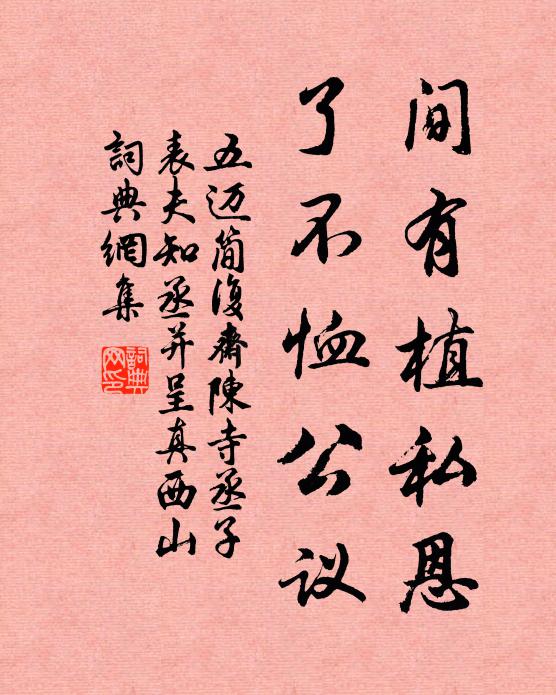 间有植私恩
了不恤公议
五迈简復齋陳寺丞子
表夫知丞并呈真西山
詞典網集
詞典網印